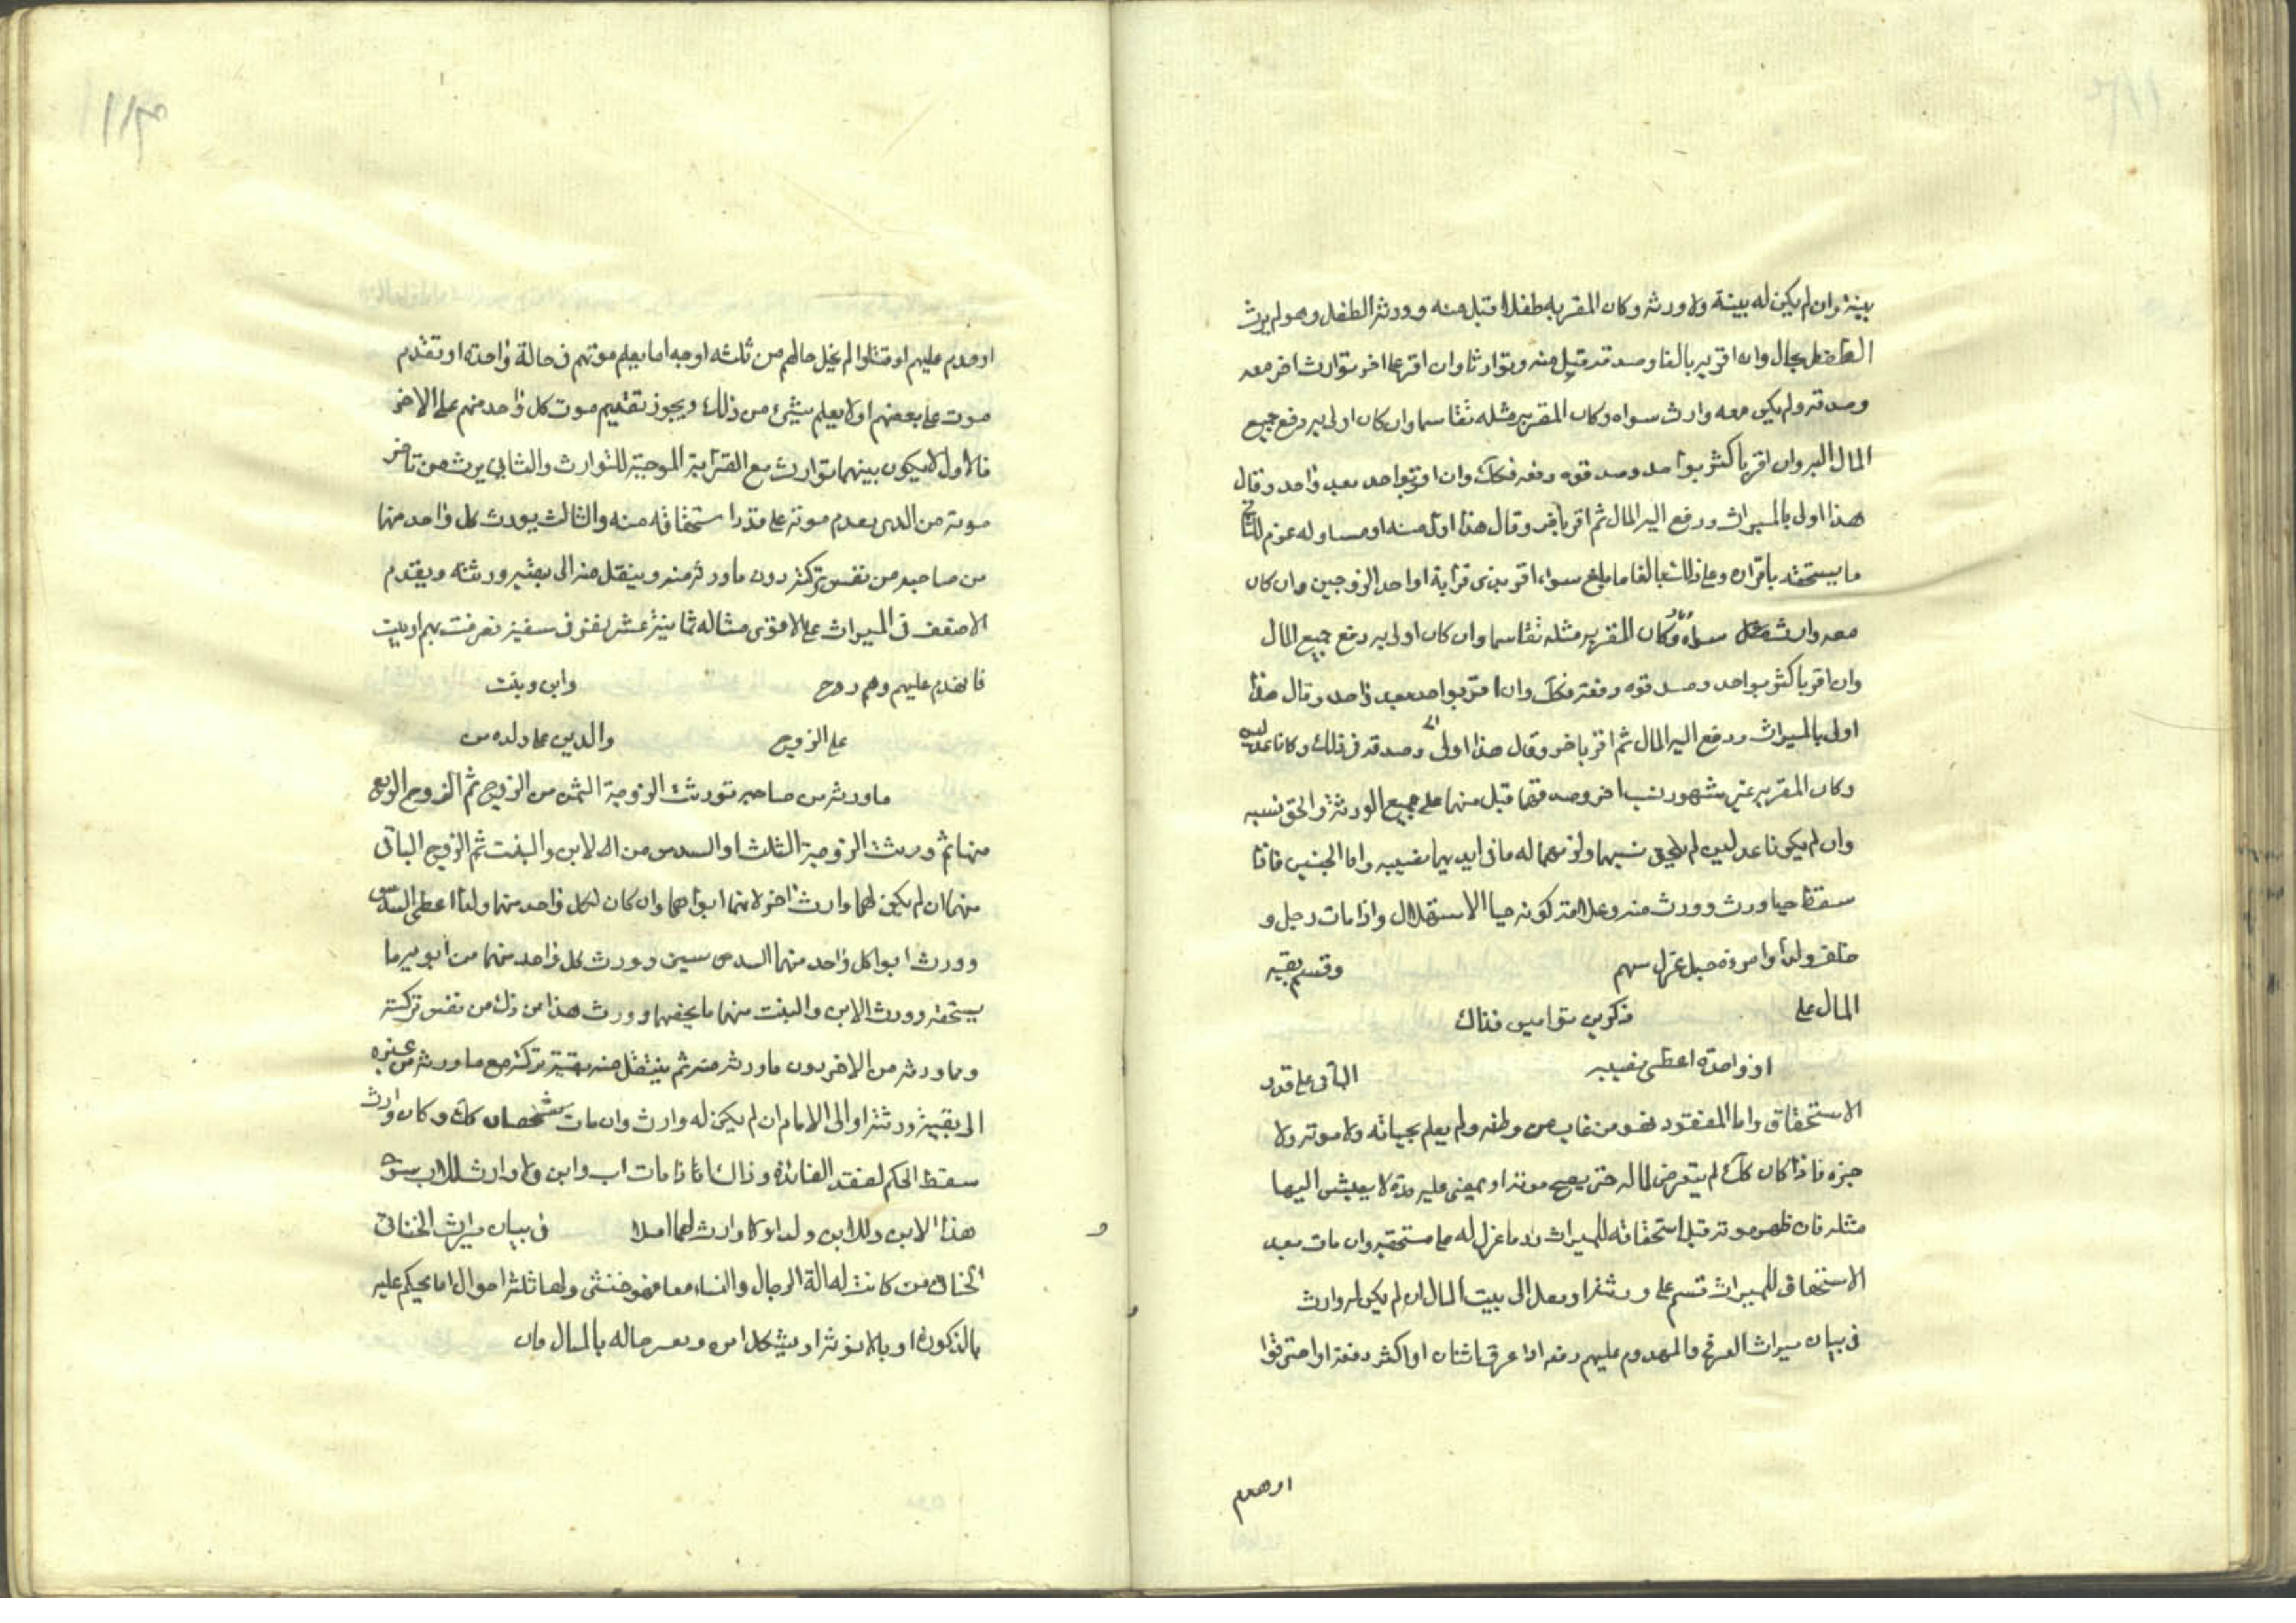 بينة وان لم يكن له بينة ولا ورثه وكان المقر به طفلا قبل منه وورثه الطفل وهو لم يرث
الطفل بحال وان اقر به بالغا وصدقه قبل منه وتوارثا وان اقر على اخر بتوارث اخر معه
وصدقه ولم يكن معه وارث سواه وكان المقر به مثله تقاسما وان كان اولى به دفع جميع
المال اليه وان اقر باكثر بواحد وصدقوه دفعه فكك وان اقر بواحد بعد واحد وقال
هذا اولى بالميراث ودفع اليه المال ثم اقر باخر وقال هذا اولى منه او مساو له غرم للثاني
ما يستحقه باقراره وعلى ذلك بالغا ما بلغ سواء اقر بذى قرابة او احد الزوجين وان كان
معه وارث سواه وكان المقر به مثله تقاسما وان كان اولى به دفع جميع المال
وان اقر باكثر بواحد وصدقوه دفعه فكك وان اقر بواحد بعد واحد وقال هذا
اولى بالميراث ودفع اليه المال ثم اقر باخر وقال هذا اولى وصدقه فى ذلك وكانا عدلين
وكان المقر به غير مشهور بنسب اخر وصدقهما قبل منهما على جميع الورثة والحق نسبه
وان لم يكونا عدلين لم يلحق نسبهما ولزمهما له ما فى ايديهما نصيبه واما الجنين فاذا
سقط حيا ورث وورث منه وعلامة كونه حيا الاستهلال واذا مات رجل و
خلف ولدا وامرءة حبلى عزل سهم وقسم بقيه
المال على ذكرين توامين فذاك
او واحدة اعطى نصيبه الباقى على قدر
الاستحقاق واما المفقود فهو من غاب من وطنه ولم يعلم بحياته ولا موته ولا
خبره فاذا كان كك لم يتعرض لماله حتى يصح موته او يمضى عليه مدة لا يعيش اليها
مثله فان ظهر موته قبل استحقاقه للميراث رد ما عزل له على مستحقيه وان مات بعد
الاستحقاق للميراث قسم على ورثته او نقل الى بيت المال ان لم يكن له وارث
فى بيان ميراث الغرقى والمهدوم عليهم دفعه اذا غرق اثنان او اكثر دفعة او احترقوا
او هدم
او هدم عليهم او قتلوا لم يخل حالهم من ثلثه اوجه اما يعلم موتهم فى حالة واحدة او تقدم
موت على بعضهم او لا يعلم شيئ من ذلك ويجوز تقديم موت كل واحد منهم على الاخر
فالاول لا يكون بينهما توارث مع القرابة الموجبة للتوارث والثانى يرث من تاخر
موته من الذى تقدم موته على قدر استحقاقه منه والثالث يورث كل واحد منهما
من صاحبه من نفس تركته دون ما ورثه منه وينقل منه الى بقية ورثته ويقدم
الاضعف فى الميراث على الاقوى مثاله ثمانية عشر نفو فى سفينة غرقت بهم او بيت
فانهدم عليهم وهم زوج وابن وبنت
على الزوج والدين على ولده من
ما ورثه من صاحبه تورث الزوجة الثمن من الزوج ثم الزوج الربع
منها ثم ورث الزوجة الثلث او السدس من الابن والبنت ثم الزوج الباقى
منهما ان لم يكن لهما وارث اخر لانهما ابواهما وان كان لكل واحد منهما ولدا اعطى السدس
وورث ابوا كل واحد منهما السدسين وورث كل واحد منهما من ابويه ما
يستحقه وورث الابن والبنت منهما ما يخصهما وورث هذا من ذلك من نفس تركته
وما ورثه من الاخر دون ما ورثه منه ثم ينتقل منه بقية تركته مع ما ورثه من غيره
الى بقية ورثته او الى الامام ان لم يكن له وارث وان مات شخصان كك وكان وارث
سقط الحكم لفقد الفائدة وذلك اذا مات اب وابن ولا وارث للاب سوى
هذا الابن وللابن ولد او لا وارث لهما اصلا فى بيان ميراث الخناثى
الخناثى من كانت له الة الرجال والنساء معا فهو خنثى ولها ثلثة احوال اما يحكم عليه
بالذكورة او بالانوثة او يشكل امره ويعسر حاله بالمبال فان